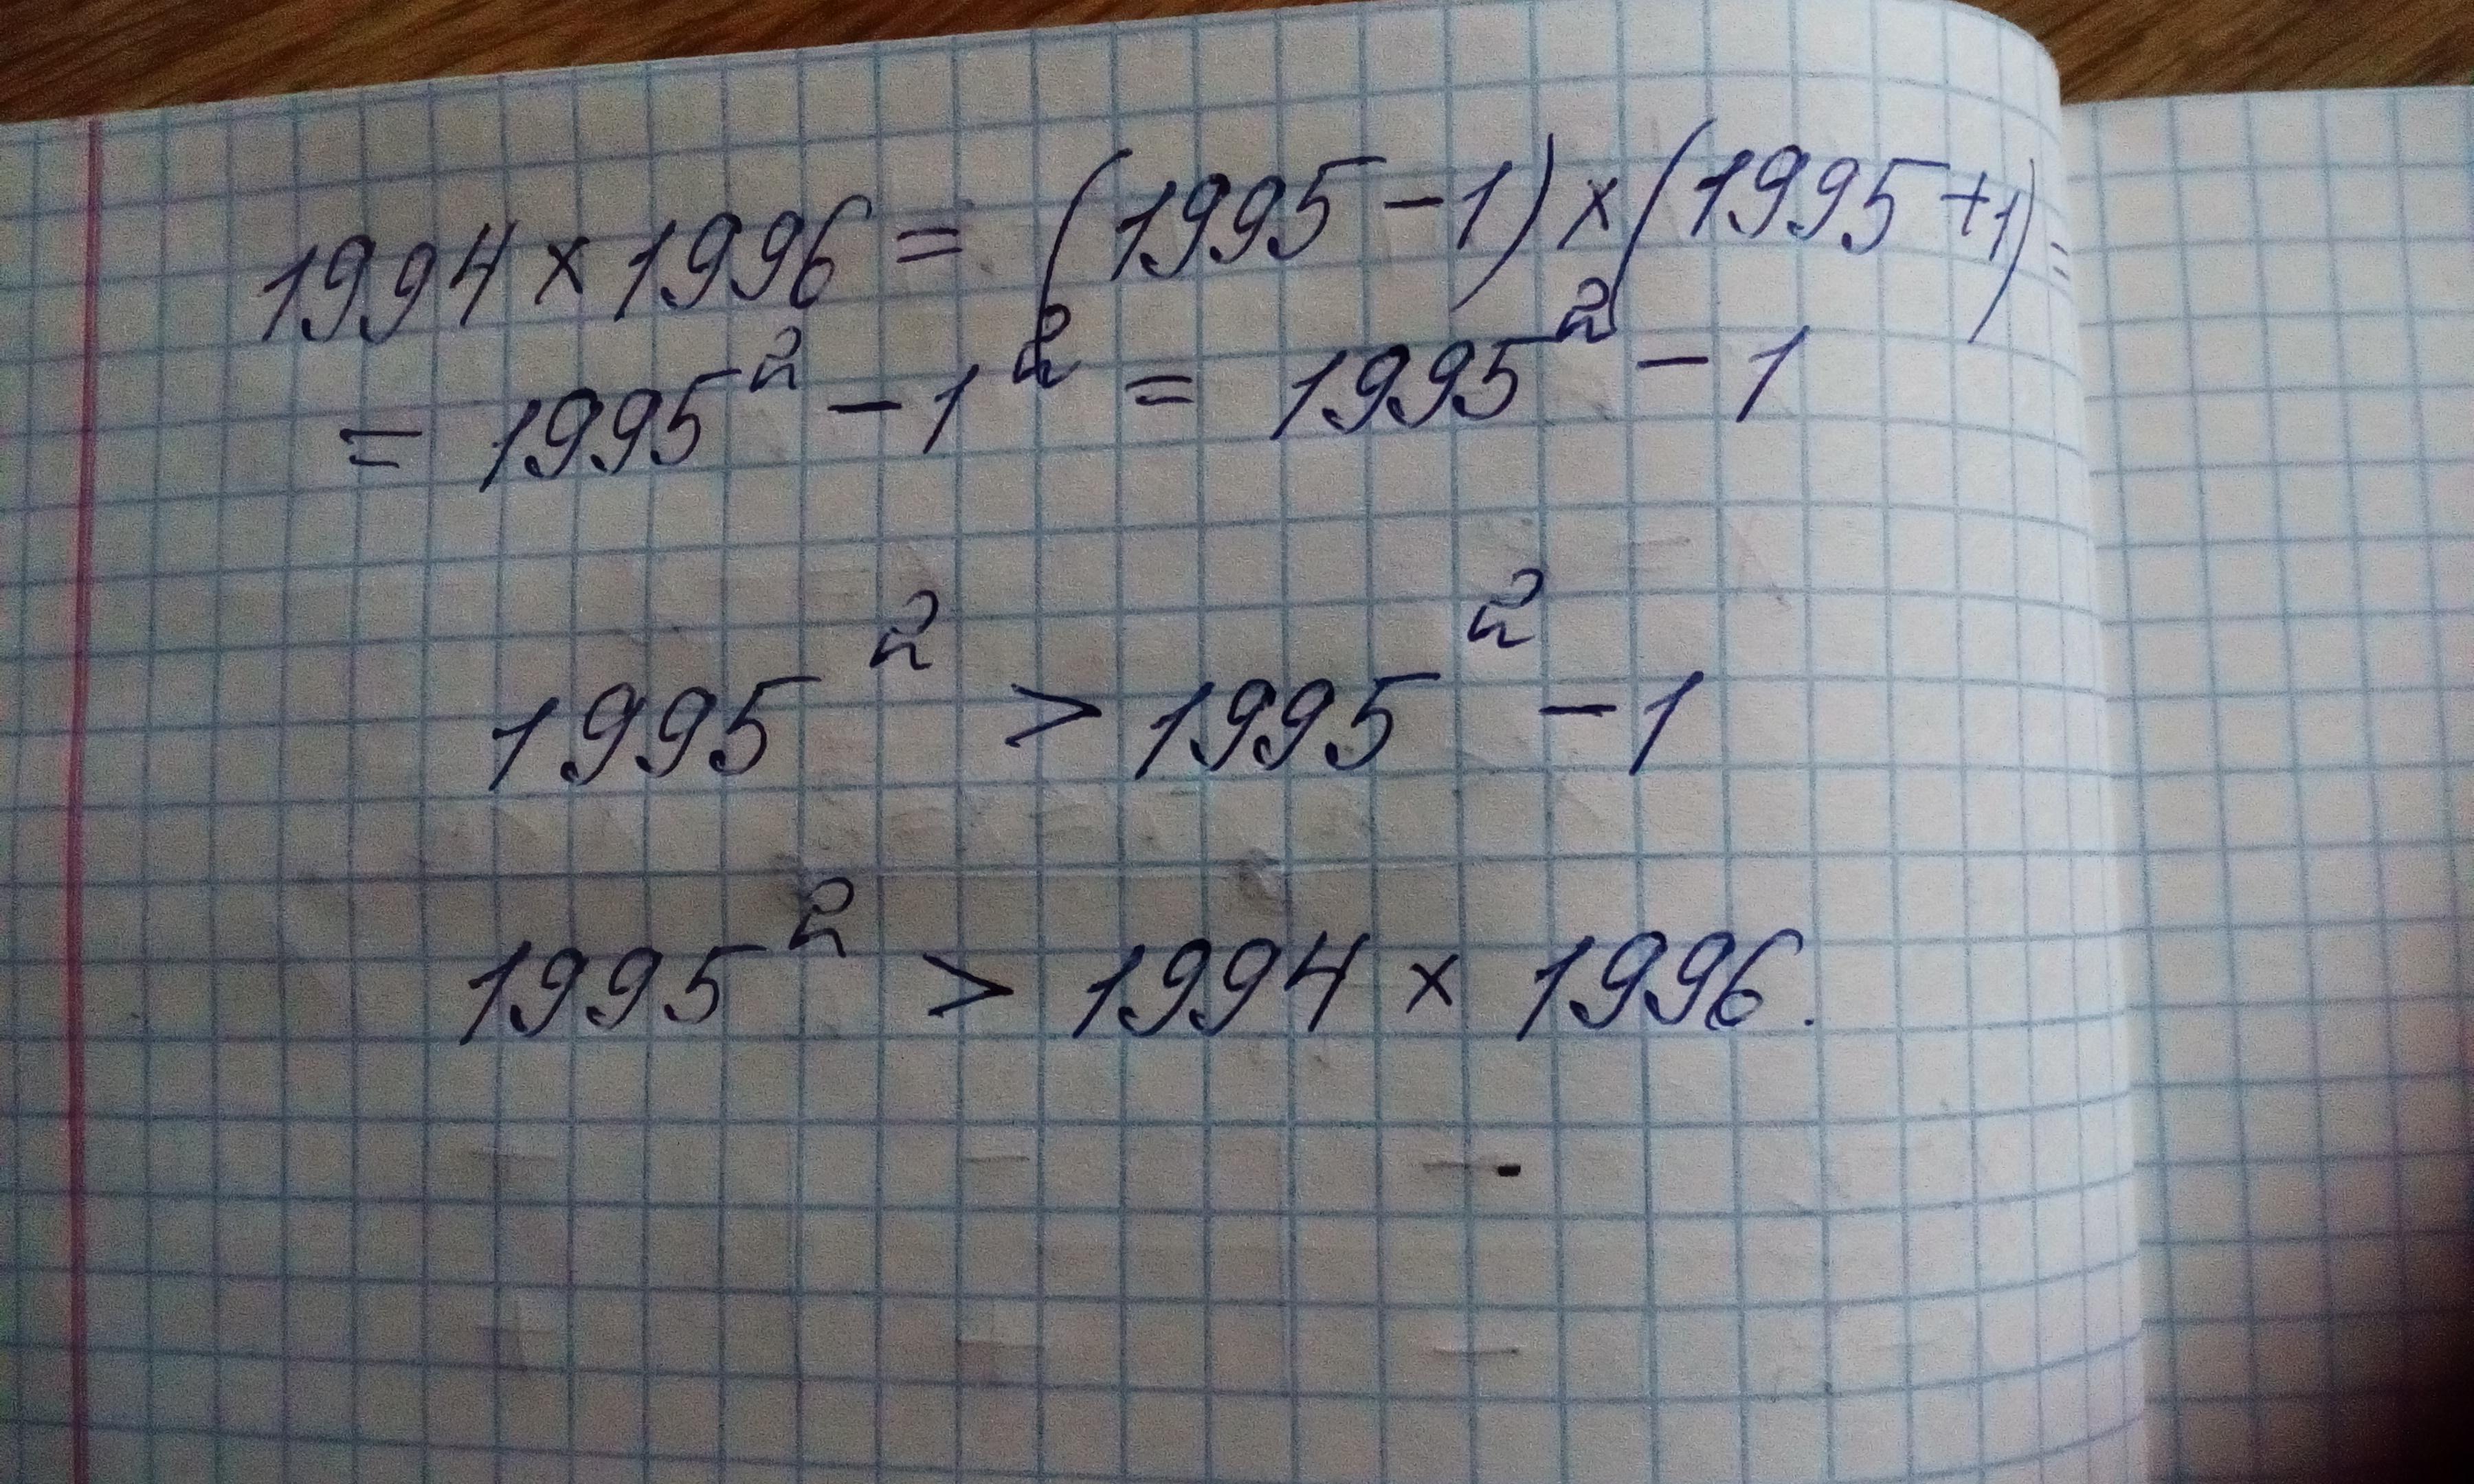 1994 × 1996 = (1995 − 1) × (1995 + 1) =
= 1995² − 1² = 1995² − 1
1995² > 1995² − 1
1995² > 1994 × 1996.